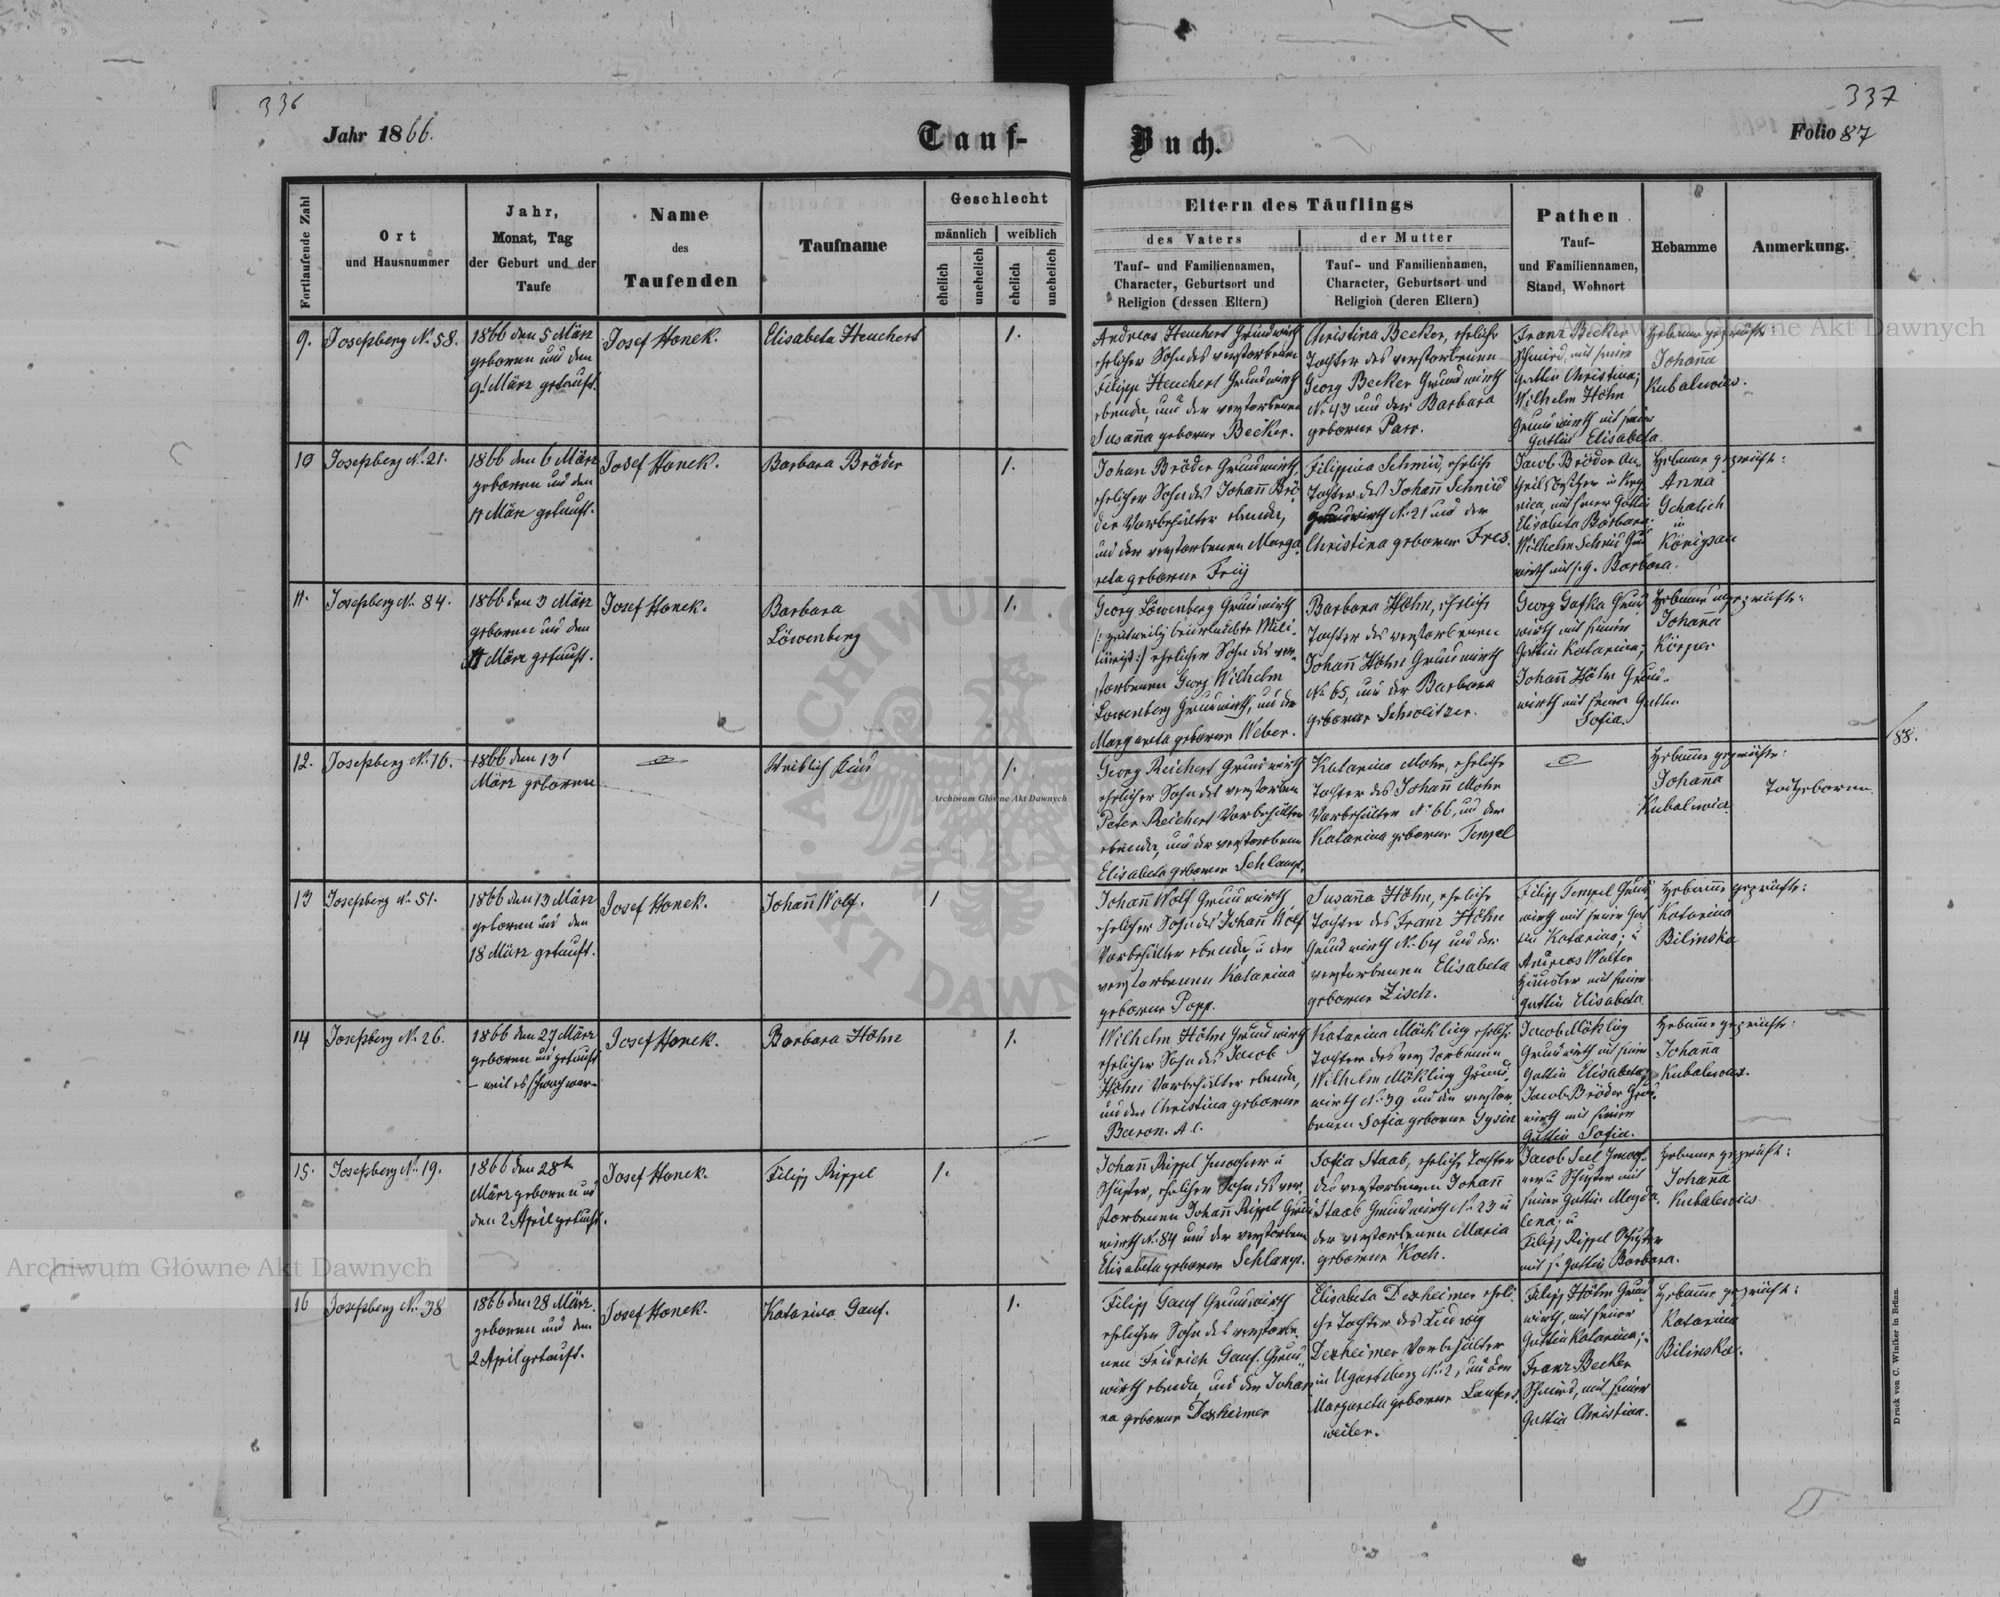 336
337
Jahr 1866.
Tauf-
Buch.
Folio 87
Fortlaufende Zahl
Ort
und Hausnummer
Jahr,
Monat, Tag
der Geburt und der
Taufe
Name
des
Taufenden
Taufname
Geschlecht
männlich
weiblich
ehelich
unehelich
ehelich
unehelich
Eltern des Täuflings
des Vaters
Tauf- und Familiennamen,
Character, Geburtsort und
Religion (dessen Eltern)
der Mutter
Tauf- und Familiennamen,
Character, Geburtsort und
Religion (deren Eltern)
Pathen
Tauf-
und Familiennamen,
Stand, Wohnort
Hebamme
Anmerkung.
9.
Josefsberg No. 58.
1866 den 5 März
geboren und den
9t März getauft.
Josef Honek.
Elisabeta Heuchert
1.
Andreas Heuchert Grundwirth
ehelicher Sohn des verstorbenen
Filipp Heuchert Grundwirth
ebenda, und der verstorbenen
Susanna geborene Becker.
Christina Becker, eheliche
Tochter des verstorbenen
Georg Becker Grundwirth
No 43 und der Barbara
geborene Parr.
Franz Becker
Schmied, mit seiner
Gattin Christina;
Wilhelm Höhn
Grundwirth mit seiner
Gattin Elisabeta
Hebamme geprüfte
Johanna
Kubalewicz.
10
Josefsberg No. 21.
1866 den 6 März
geboren und den
11 März getauft.
Josef Honek.
Barbara Bröder
1.
Johan Bröder Grundwirth,
ehelicher Sohn des Johann Brö-
der Vorbehälter ebenda,
und der verstorbenen Marga
reta geborene Frey
Filippina Schmid, ehelich
Tochter des Johann Schmid
Grundwirth No. 21 und der
Christina geborene Fres.
Jacob Bröder An-
mit seiner Gattin
Elisabeta Barbara:
Wilhelm Schmid Grund
wirth mit s. G. Barbara.
Hebamme geprüft:
Anna
Schalich
in
Königsau
11.
Josefsberg No. 84.
1866 den 3 März
geboren und den
11 März getauft.
Josef Honek.
Barbara
Löwenberg
1.
Georg Löwenberg Grundwirth
/: zeitweilig beurlaubte Mili-
ehelicher Sohn des ver-
storbenen Georg Wilhelm
Lowenberg Grundwirth, und der
Margareta geborene Weber.
Barbara Höhn, eheliche
Tochter des verstorbenen
Johann Höhn Grundwirth
No 65, und der Barbara
geborene Schweitzer.
Georg Gafka Grund
wirth mit seiner
Gattin Katarina;
Johann Höhn Grund-
wirth mit seiner Gattin
Sofia.
Hebamme ungeprüfte:
Johana
Körper
12.
Josefsberg No. 76.
1866 den 13t
März geboren
Weiblich Kind
1.
Georg Reichert Grundwirth
ehelicher Sohn des verstorben
Peter Reichert Vorbehälter
ebenda, und der verstorbenen
Elisabeta geborene Schlamp.
Katarina Mohr, eheliche
Tochter des Johann Mohr
Vorbehälter No 66, und der
Katarina geborene Tempel
Hebamme geprüfte:
Johanna
Kubalewicz
Todgeboren.
88.
13
Josefsberg No. 51.
1866 den 13 März
geboren und den
18 März getauft.
Josef Honek.
Johann Wolf.
1
Johann Wolf Grundwirth
ehelicher Sohn des Johann Wolf
Vorbehälter ebenda, u der
verstorbenen Katarina
geborene Popp.
Susanna Höhn, eheliche
Tochter des Franz Höhn
Grundwirth No. 64 und der
verstorbenen Elisabeta
geborene Zisch.
Filipp Tempel Grund
wirth mit seiner Gat
tin Katarina; u
Andreas Walter
Häusler mit seiner
Gattin Elisabeta
Hebamme geprüfte:
Katarina
Bilinska
14
Josefsberg No. 26.
1866 den 27 März
geboren und getauft
– weil es schwach war –
Josef Honek.
Barbara Höhn
1.
Wilhelm Höhn Grundwirth
ehelicher Sohn des Jacob
Höhn Vorbehälter ebenda,
und der Christina geborene
Baron. A. C.
Katarina Mökling eheliche
Tochter des verstorbenen
Wilhelm Mökling Grund-
wirth No. 39 und der verstor-
benen Sofia geborene Gysin
Jacob Mökling
Grundwirth mit seiner
Gattin Elisabeta;
Jacob Bröder Grund-
wirth mit seiner
Gattin Sofia.
Hebamme geprüfte:
Johana
Kubalewicz.
15.
Josefsberg No. 19.
1866 den 28ten
März geboren und
den 2 April getauft.
Josef Honek.
Filipp Rippel
1.
Johann Rippel Inwohner u
Schuster, ehelicher Sohn des ver-
storbenen Johann Rippel Grund
wirth No. 84 und der verstorbenen
Elisabeta geborene Schlamp.
Sofia Staab, eheliche Tochter
des verstorbenen Johann
Staab Grundwirth No. 23 u
der verstorbenen Maria
geborene Koch.
Jacob Seel Inwoh-
ner u Schuster mit
seiner Gattin Magda-
lena; u
Filipp Rippel Schuster
mit s. Gattin Barbara.
Hebamme geprüft:
Johana
Kubalewicz
16
Josefsberg No. 38
1866 den 28 März
geboren und den
2 April getauft.
Josef Honek.
Katarina Gauf.
1.
Filipp Gauf Grundwirth
ehelicher Sohn des verstorbe-
nen Fridrich Gauf Grund-
wirth ebenda, und der Johan
na geborene Dexheimer
Elisabeta Dexheimer eheli-
che Tochter des Ludwig
Dexheimer Vorbehälter
in Ugartsberg No. 2, und der
Margareta geborene Laufers
weiler.
Filipp Höhn Grund
wirth, mit seiner
Gattin Katarina; u
Franz Becker
Schmied, mit seiner
Gattin Christina.
Hebamme geprüft:
Katarina
Bilinska.
Druck von C. Winiker in Brünn.
Archiwum Główne Akt Dawnych
Archiwum Główne Akt Dawnych
Archiwum Główne Akt Dawnych